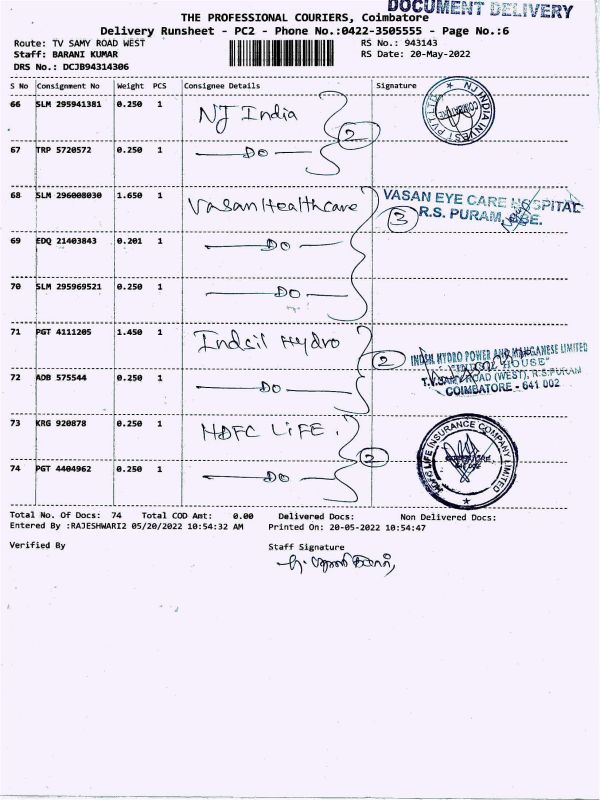 DOCUMENT DELIVERY
THE PROFESSIONAL COURIERS, Coimbatore
Delivery Runsheet - PC2 - Phone No.:0422-3505555 - Page No.:6
Route: TV SAMY ROAD WEST RS No.: 943143
Staff: BARANI KUMAR RS Date: 20-May-2022
DRS No.: DCJB94314306
S No Consignment No Weight PCS Consignee Details Signature
66 SLM 295941381 0.250 1 NJ India
NJ INDIA INVEST PVT LTD * COIMBATORE
2
67 TRP 5720572 0.250 1 DO
68 SLM 296008030 1.650 1 Vasan Healthcare
VASAN EYE CARE HOSPITAL
3 R.S. PURAM, CBE.
69 EDQ 21403843 0.201 1 DO
70 SLM 295969521 0.250 1 DO
71 PGT 4111205 1.450 1 Indsil Hydro
2 INDSIL HYDRO POWER AND MANGANESE LIMITED
HOUSE"
T.V.SAMY ROAD (WEST), R.S.PURAM
COIMBATORE - 641 002
72 ADB 575544 0.250 1 DO
73 KRG 920878 0.250 1 HDFC LIFE.
HDFC LIFE INSURANCE COMPANY LIMITED *
2
74 PGT 4404962 0.250 1 DO
Total No. Of Docs: 74 Total COD Amt: 0.00 Delivered Docs: Non Delivered Docs:
Entered By :RAJESHWARI2 05/20/2022 10:54:32 AM Printed On: 20-05-2022 10:54:47
Verified By Staff Signature